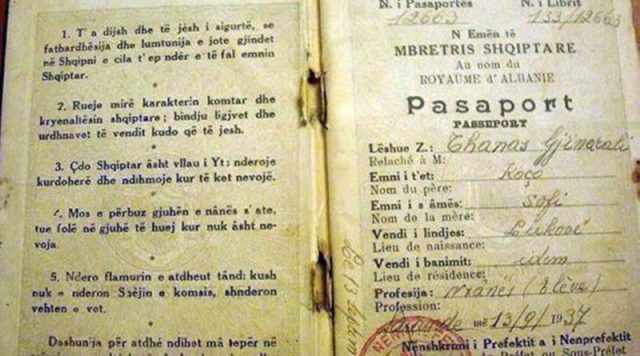 1. T'a dijsh dhe të jèsh i sigurtë, se
fatbardhësija dhe lumtunija e jote gjindet
në Shqipni e cila t'ep ndër e të fal emnin
Shqiptar.
2. Rueje mirë karakterin komtar dhe
kryenaltësin shqiptare; bindju ligjvet dhe
urdhnavet të vendit kudo që të jesh.
3. Çdo Shqiptar âsht vllau i Yt: nderoje
kurdoherë dhe ndihmoje kur të ket nevojë.
4. Mos e përbuz gjuhën e nânës s'ate,
tue folë në gjuhë të huej kur nuk âsht ne-
voja.
5. Ndero flamurin e atdheut tând: kush
nuk e nderon Ssèjin e komsis, shnderon
vehten e vot.
Dashunija për atdhe ndihet mâ tepër në
N. i Pasaportës
12663
N. i Librit
133/12663
N Emën të
MBRETRIS SHQIPTARE
Au nom du
ROYAUME d'ALBANIE
Pasaport
PASSEPORT
Lëshue Z.: Thanas Gjimarali
Relaché à M:
Emni i t'et: Koço
Nom du père:
Emni i s âmës: Sofi
Nom de la mère:
Vendi i lindjes: Lukovë
Lieu de naissance:
Vendi i banimit: idem
Lieu de résidence:
Profesija: nxânës (Elève)
Profession:
Sarandë më 13/9/1937
Nënshkrimi i Prefektit a i Nenprefektit
Préfet ou Sous-Préfet